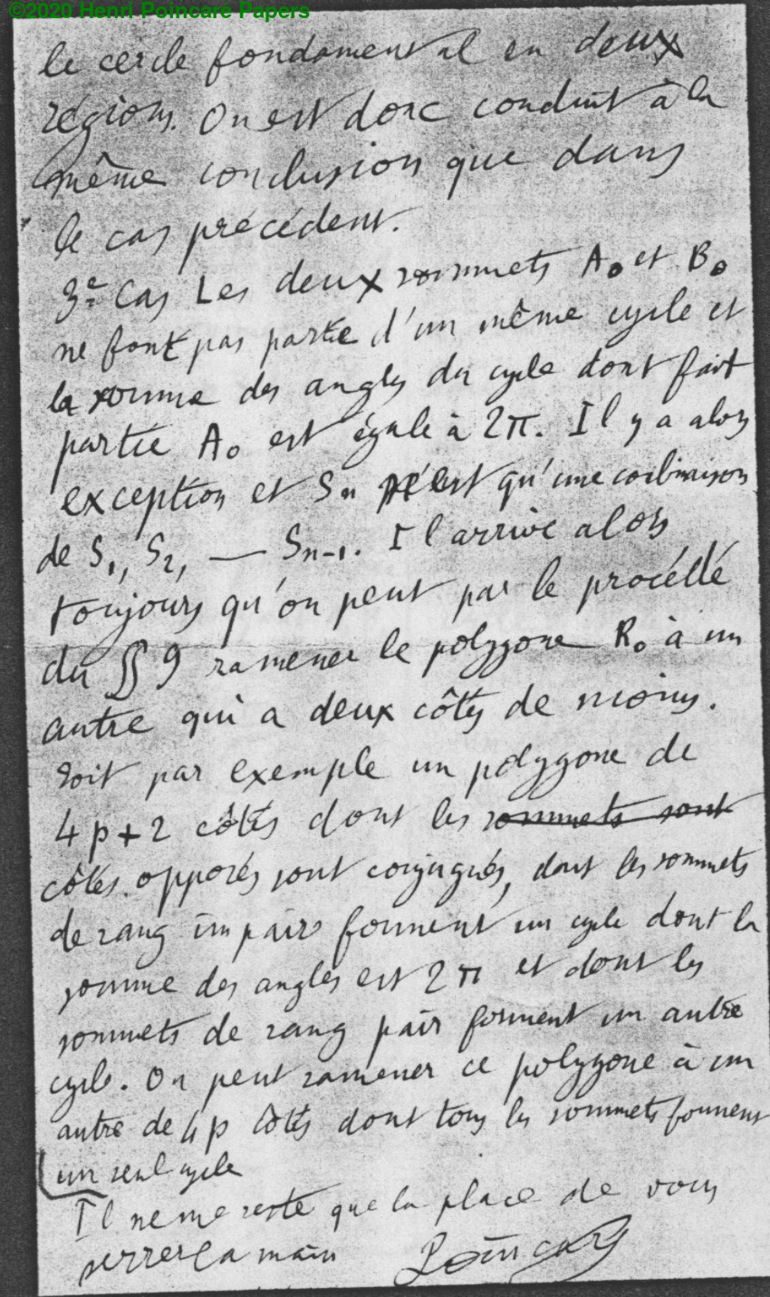 ©2020 Henri Poincaré Papers
le cercle fondamental en deux
régions. On est donc conduit à la
même conclusion que dans
le cas précédent.
3e Cas Les deux sommets A0 et B0
ne font pas partie d'un même cycle et
la somme des angles du cycle dont fait
partie A0 est égale à 2π. Il y a alors
exception et Sn n'est qu'une combinaison
de S1, S2, — Sn-1. Il arrive alors
toujours qu'on peut par le procédé
du §§ 9 ramener le polygone R0 à un
autre qui a deux côtés de moins.
Soit par exemple un polygone de
4p+2 côtés dont les sommets sont
côtés opposés sont conjugués, dont les sommets
de rang impair forment un cycle dont la
somme des angles est 2π et dont les
sommets de rang pair forment un autre
cycle. On peut ramener ce polygone à un
autre de 4p côtés dont tous les sommets forment
un seul cycle
Il ne me reste que la place de vous
serrer la main Poincaré